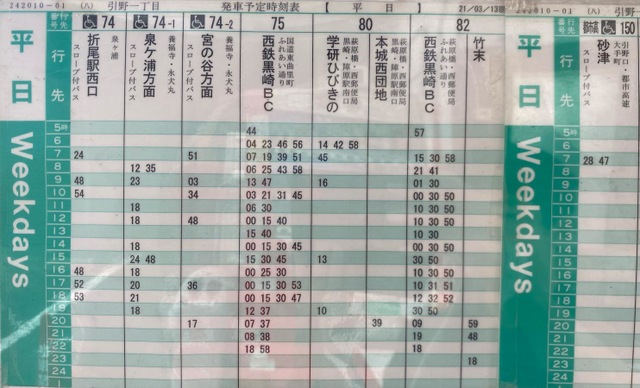 242010-01 (八) 引野一丁目 発車予定時刻表 【 平 日 】 21/03/13
242010-01 (八) 引野
番号 74 74-1 74-2 75 80 82 番号 150
行先
平日 Weekdays
泉ヶ浦
折尾駅西口
スロープ付バス
養福寺・永犬丸
泉ケ浦方面
スロープ付バス
養福寺・永犬丸
宮の谷方面
スロープ付バス
国道東曲里町
ふれあい通り
西鉄黒崎BC
萩原橋・西郵便局
黒崎・陣原駅南口
学研ひびきの
萩原橋・西郵便局
黒崎・陣原駅南口
本城西団地
萩原橋・西郵便局
ふれあい通り
西鉄黒崎BC
竹末
行先
平日 Weekdays
引野口・都市高速
大手町
砂津
スロープ付バス
5時 44 57 5時
6 04 23 46 56 14 42 58 6
7 24 51 07 19 39 51 45 15 30 58 7 28 47
8 12 35 06 25 43 58 21 41 8
9 48 23 03 13 47 16 01 30 9
10 54 34 03 21 31 45 00 30 50 10
11 18 06 30 10 30 50 11
12 18 48 00 15 40 10 30 50 12
13 15 40 10 30 13
14 18 00 15 30 45 00 30 50 14
15 24 48 15 30 45 13 30 50 15
16 48 18 00 25 30 10 30 50 16
17 52 20 36 00 15 30 53 10 31 51 17
18 53 21 00 15 30 47 12 32 52 18
19 18 12 37 10 30 50 19
20 17 07 37 39 09 59 20
21 08 38 19 48 21
22 18 58 18 22
23 18 23
24 24